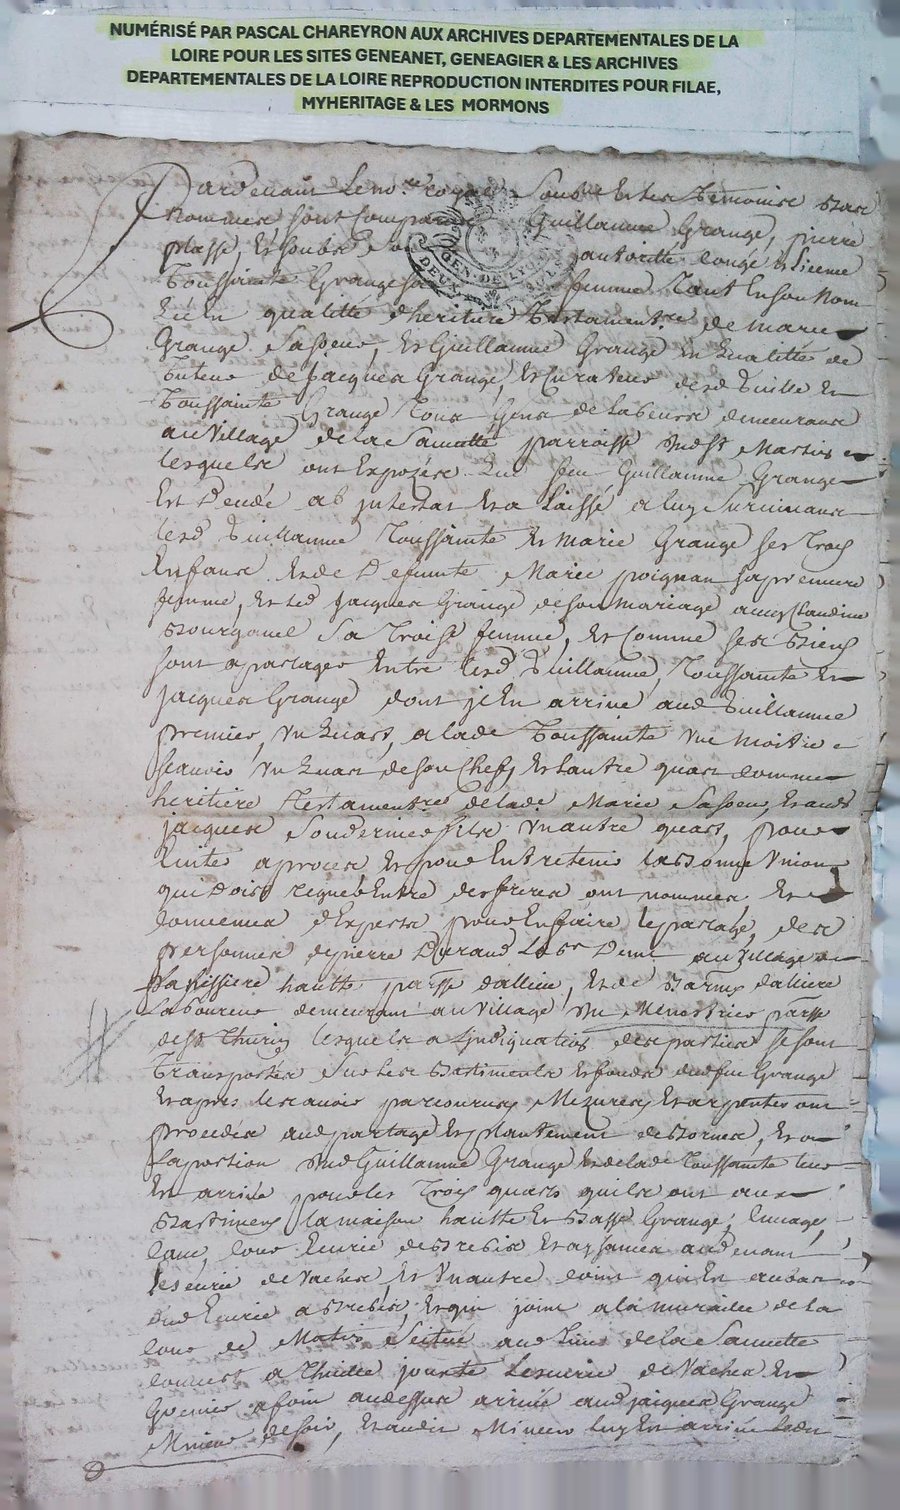 NUMÉRISÉ PAR PASCAL CHAREYRON AUX ARCHIVES DEPARTEMENTALES DE LA
LOIRE POUR LES SITES GENEANET, GENEAGIER & LES ARCHIVES
DEPARTEMENTALES DE LA LOIRE REPRODUCTION INTERDITES POUR FILAE,
MYHERITAGE & LES MORMONS
Pardevant Le no.re royal Sous Et les Temoins Bas
nommes sont Comparus Guillaume Grange, pierre
plasse, Et sous autoritte
Toussainte Grange sa femme Tant En son Nom
qu'En qualitté d'heritiere Testament.re de marie
Grange Sa soeur, Et Guillaume Grange En qualitté de
Tuteur de Jacques Grange, Et Curateur desd Guille Et
Toussainte Grange Tous Gens de Labeur demeurants
au Village de la Sauvetté parroisse St Martin
lesquels ont Expozés que feu Guillaume Grange
Est Decedé ab jntestat Et a Laissé a luy Survivants
lesd Guillaume Toussainte Et Marie Grange ses Trois
Enfants Et de Defunte Marie poignan sa premiere
femme, Et led Jacques Grange de son mariage avecq Claudine
Bourganel Sa Trois.e femme, Et Comme ses Biens
sont a partager Entre lesd Guillaume, Toussainte Et
Jacques Grange dont jl En arrive aud Guillaume
premier, Un quart, a lade Toussainte Une moitie
Scavoir Un quart de son Chef, Et l'autre quart comme
heritiere Testament.re de lade Marie Sa soeur, Et aud
Jacques Grange fils Un autre quart, pour
Eviter a proces Et pour Entretenir la bonne Union
qui Doit regner Entre des freres ont nommes Et
Convenus d'Experts pour En faire le partage, des
personnes de pierre Durand Lab.r Dem.t au Village de
la Vissiere hautte par.sse d'allieu, Et de Barny dalliere
Laboureur demeurant au Village du Menestrier par.sse
de St Thurin lesquels a L'jndiquation des parties se sont
Transportés Sur les Batiments Et fonds dud feu Grange
Et apres les avoir parcourus, Mezurés, Et arpentes ont
procedés aud partage, Et plantement de Bornes, Et a
la portion dud Guillaume Grange Et de lade Toussainte leur
Est arrivé pour les Trois quarts qu'ils ont aux
Batiments la maison hautte Et Basse Grange, Cuvage,
Cave, Cour Ecurie de Brebis Et aysances au Devant
l'Ecurie de Vaches, Et Un autre Coint qui Est au bas
dud Ecurie a Brebis, Et qui joint a la muraille de la
Cour de Matin Scitué aud Lieu de la Sauvette
Couvert a Thuile jointe L'Ecurie de Vaches Et
Grenier a foin au dessus arrivé aud jacques Grange
Mineur de soir, Et audit Mineur luy Est arrivé ledit